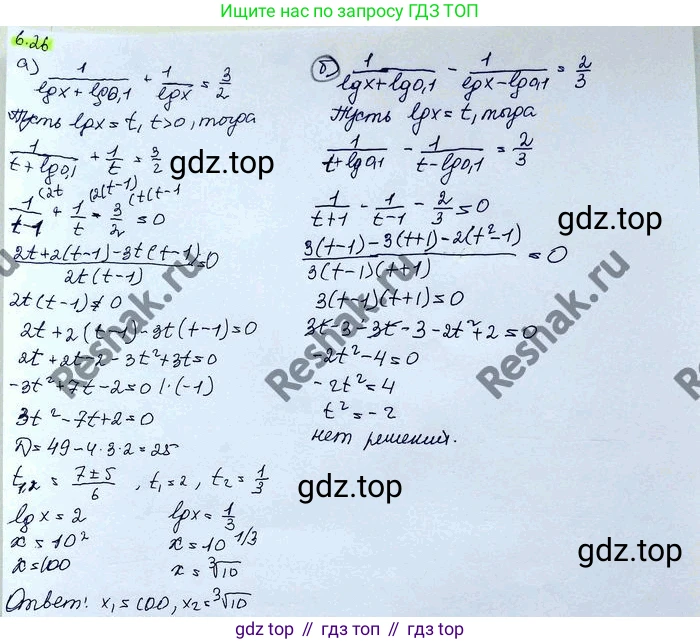 Ищите решения на сайте ГДЗ ТОП
6.26
а) 1/(lgx + lg0,1) + 1/lgx = 3/2
Пусть lgx = t, t>0, тогда
1/(t+lg0,1) + 1/t = 3/2
1/(t-1) (2t + 1/t (2(t-1) - 3/2 (t(t-1 = 0
(2t+2(t-1)-3t(t-1))/(2t(t-1)) = 0
2t(t-1)≠0
2t+2(t-1)-3t(t-1)=0
2t+2t-2-3t²+3t=0
-3t²+7t-2=0 | ·(-1)
3t²-7t+2=0
D=49-4·3·2=25
t₁,₂ = (7±5)/6, t₁=2, t₂=1/3
lgx=2 lgx=1/3
x=10² x=10^1/3
x=100 x=³√10
Ответ: x₁=100, x₂=³√10
б) 1/(lgx+lg0,1) - 1/(lgx-lg0,1) = 2/3
Пусть lgx=t, тогда
1/(t+lg0,1) - 1/(t-lg0,1) = 2/3
1/(t+1) - 1/(t-1) - 2/3 = 0
(3(t-1)-3(t+1)-2(t²-1))/(3(t-1)(t+1)) = 0
3(t-1)(t+1)=0
3t-3-3t-3-2t²+2=0
-2t²-4=0
-2t²=4
t²=-2
нет решений.
gdz.top
gdz.top
gdz.top
gdz.top
gdz.top
Reshak.ru
Reshak.ru
Reshak.ru
Reshak.ru
gdz.top // гдз.топ // gdz.top // гдз.топ // gdz.top